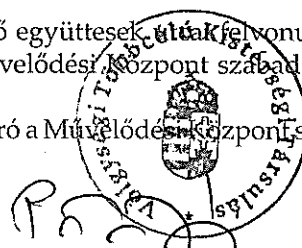 ő együttesek utcai felvonu
velődési Központ szabad
ró a Művelődési Központ s
Völgységi Többcélú Kistérségi Társulás